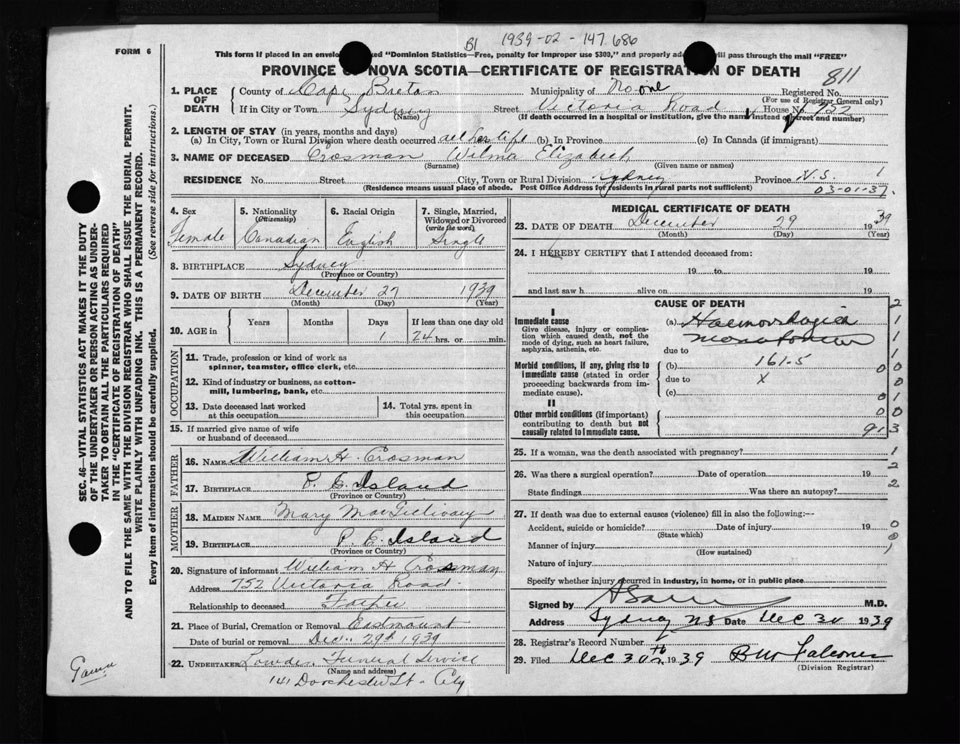 B1 1939-02-147.686
811
FORM 6
This form if placed in an envelope marked "Dominion Statistics—Free, penalty for improper use $300," and properly addressed will pass through the mail "FREE"
PROVINCE OF NOVA SCOTIA—CERTIFICATE OF REGISTRATION OF DEATH
1. PLACE OF DEATH County of Cape Breton Municipality of No one Registered No.
(For use of Registrar General only)
If in City or Town Sydney Street Victoria Road House No. 752
(Name) (If death occurred in a hospital or institution, give the name instead of street and number)
2. LENGTH OF STAY (in years, months and days)
(a) In City, Town or Rural Division where death occurred all her life (b) In Province (c) In Canada (if immigrant)
3. NAME OF DECEASED Crosman Wilma Elizabeth
(Surname) (Given name or names)
RESIDENCE No. Street City, Town or Rural Division Sydney Province N.S. 1
(Residence means usual place of abode. Post Office Address for residents in rural parts not sufficient) 03-01-37
4. Sex Female
5. Nationality (Citizenship) Canadian
6. Racial Origin English
7. Single, Married, Widowed or Divorced (write the word) Single
8. BIRTHPLACE Sydney
(Province or Country)
9. DATE OF BIRTH December 27 1939
(Month) (Day) (Year)
10. AGE in Years Months Days 1 If less than one day old 24 hrs. or min.
OCCUPATION
11. Trade, profession or kind of work as spinner, teamster, office clerk, etc.
12. Kind of industry or business, as cotton-mill, lumbering, bank, etc.
13. Date deceased last worked at this occupation
14. Total yrs. spent in this occupation
15. If married give name of wife or husband of deceased
FATHER
16. NAME William H. Crosman
17. BIRTHPLACE P. E. Island
(Province or Country)
MOTHER
18. MAIDEN NAME Mary MacGillivary
19. BIRTHPLACE P. E. Island
(Province or Country)
20. Signature of informant William H Crosman
Address 752 Victoria Road
Relationship to deceased Father
21. Place of Burial, Cremation or Removal Eastmount
Date of burial or removal Dec. 29th 1939
22. UNDERTAKER Lowden Funeral Service
(Name and address)
141 Dorchester St - City
MEDICAL CERTIFICATE OF DEATH
23. DATE OF DEATH December 29 1939
(Month) (Day) (Year)
24. I HEREBY CERTIFY that I attended deceased from:
19 to 19
and last saw h alive on 19
CAUSE OF DEATH
I
Immediate cause (a) Haemorrhagica
Give disease, injury or complication which caused death, not the mode of dying, such as heart failure, asphyxia, asthenia, etc.
due to
Morbid conditions, if any, giving rise to immediate cause (stated in order proceeding backwards from immediate cause) (b) 161-5
due to x
(c)
II
Other morbid conditions (if important) contributing to death but not causally related to immediate cause.
25. If a woman, was the death associated with pregnancy?
26. Was there a surgical operation? Date of operation 19
State findings Was there an autopsy?
27. If death was due to external causes (violence) fill in also the following:—
Accident, suicide or homicide? Date of injury 19
(State which)
Manner of injury
(How sustained)
Nature of injury
Specify whether injury occurred in industry, in home, or in public place
Signed by M.D.
Address Sydney NS Date Dec 30 1939
28. Registrar's Record Number
29. Filed Dec 30th 1939 B W Falconer
(Division Registrar)
SEC. 46—VITAL STATISTICS ACT MAKES IT THE DUTY
OF THE UNDERTAKER OR PERSON ACTING AS UNDER-
TAKER TO OBTAIN ALL THE PARTICULARS REQUIRED
IN THE "CERTIFICATE OF REGISTRATION OF DEATH"
AND TO FILE THE SAME WITH THE DIVISION REGISTRAR WHO SHALL ISSUE THE BURIAL PERMIT.
WRITE PLAINLY WITH UNFADING INK. THIS IS A PERMANENT RECORD.
Every item of information should be carefully supplied. (See reverse side for instructions.)